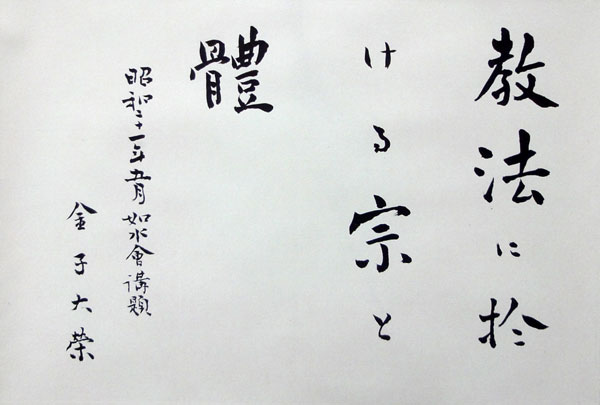 教法に於
ける宗と
體
昭和二十一年五月 如水會講題
金子大榮